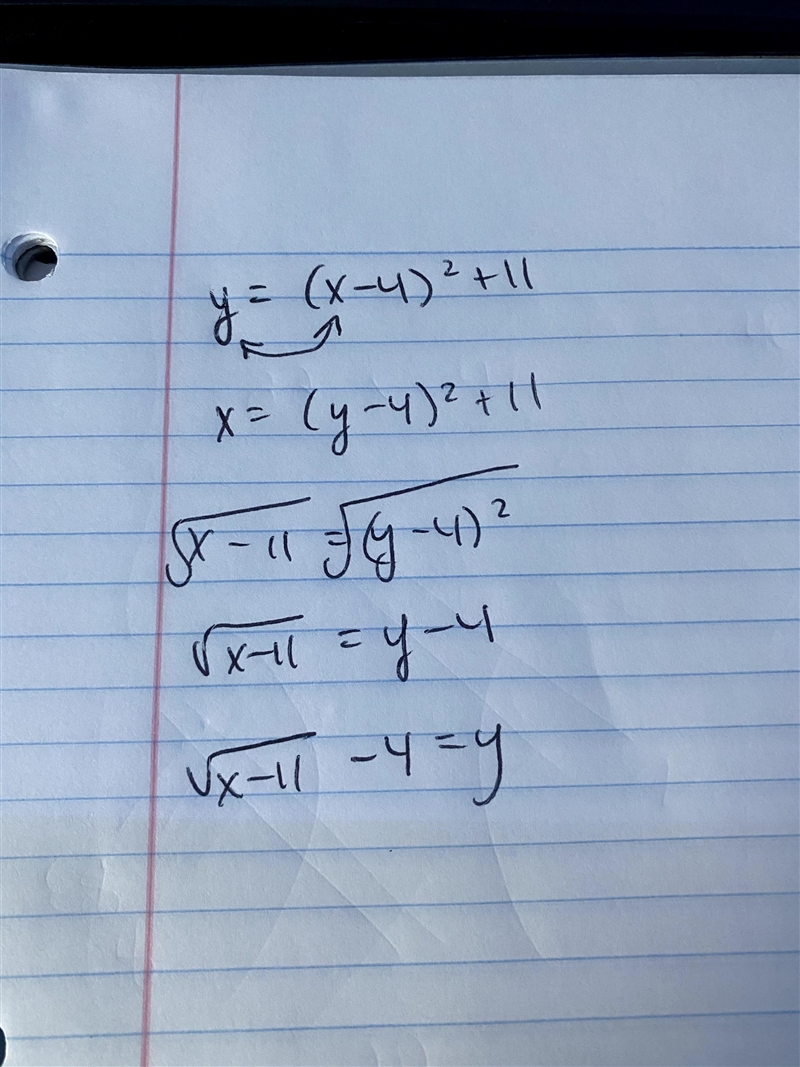 y = (x-4)² + 11
x = (y-4)² + 11
√x - 11 = √(y-4)²
√x-11 = y-4
√x-11 - 4 = y